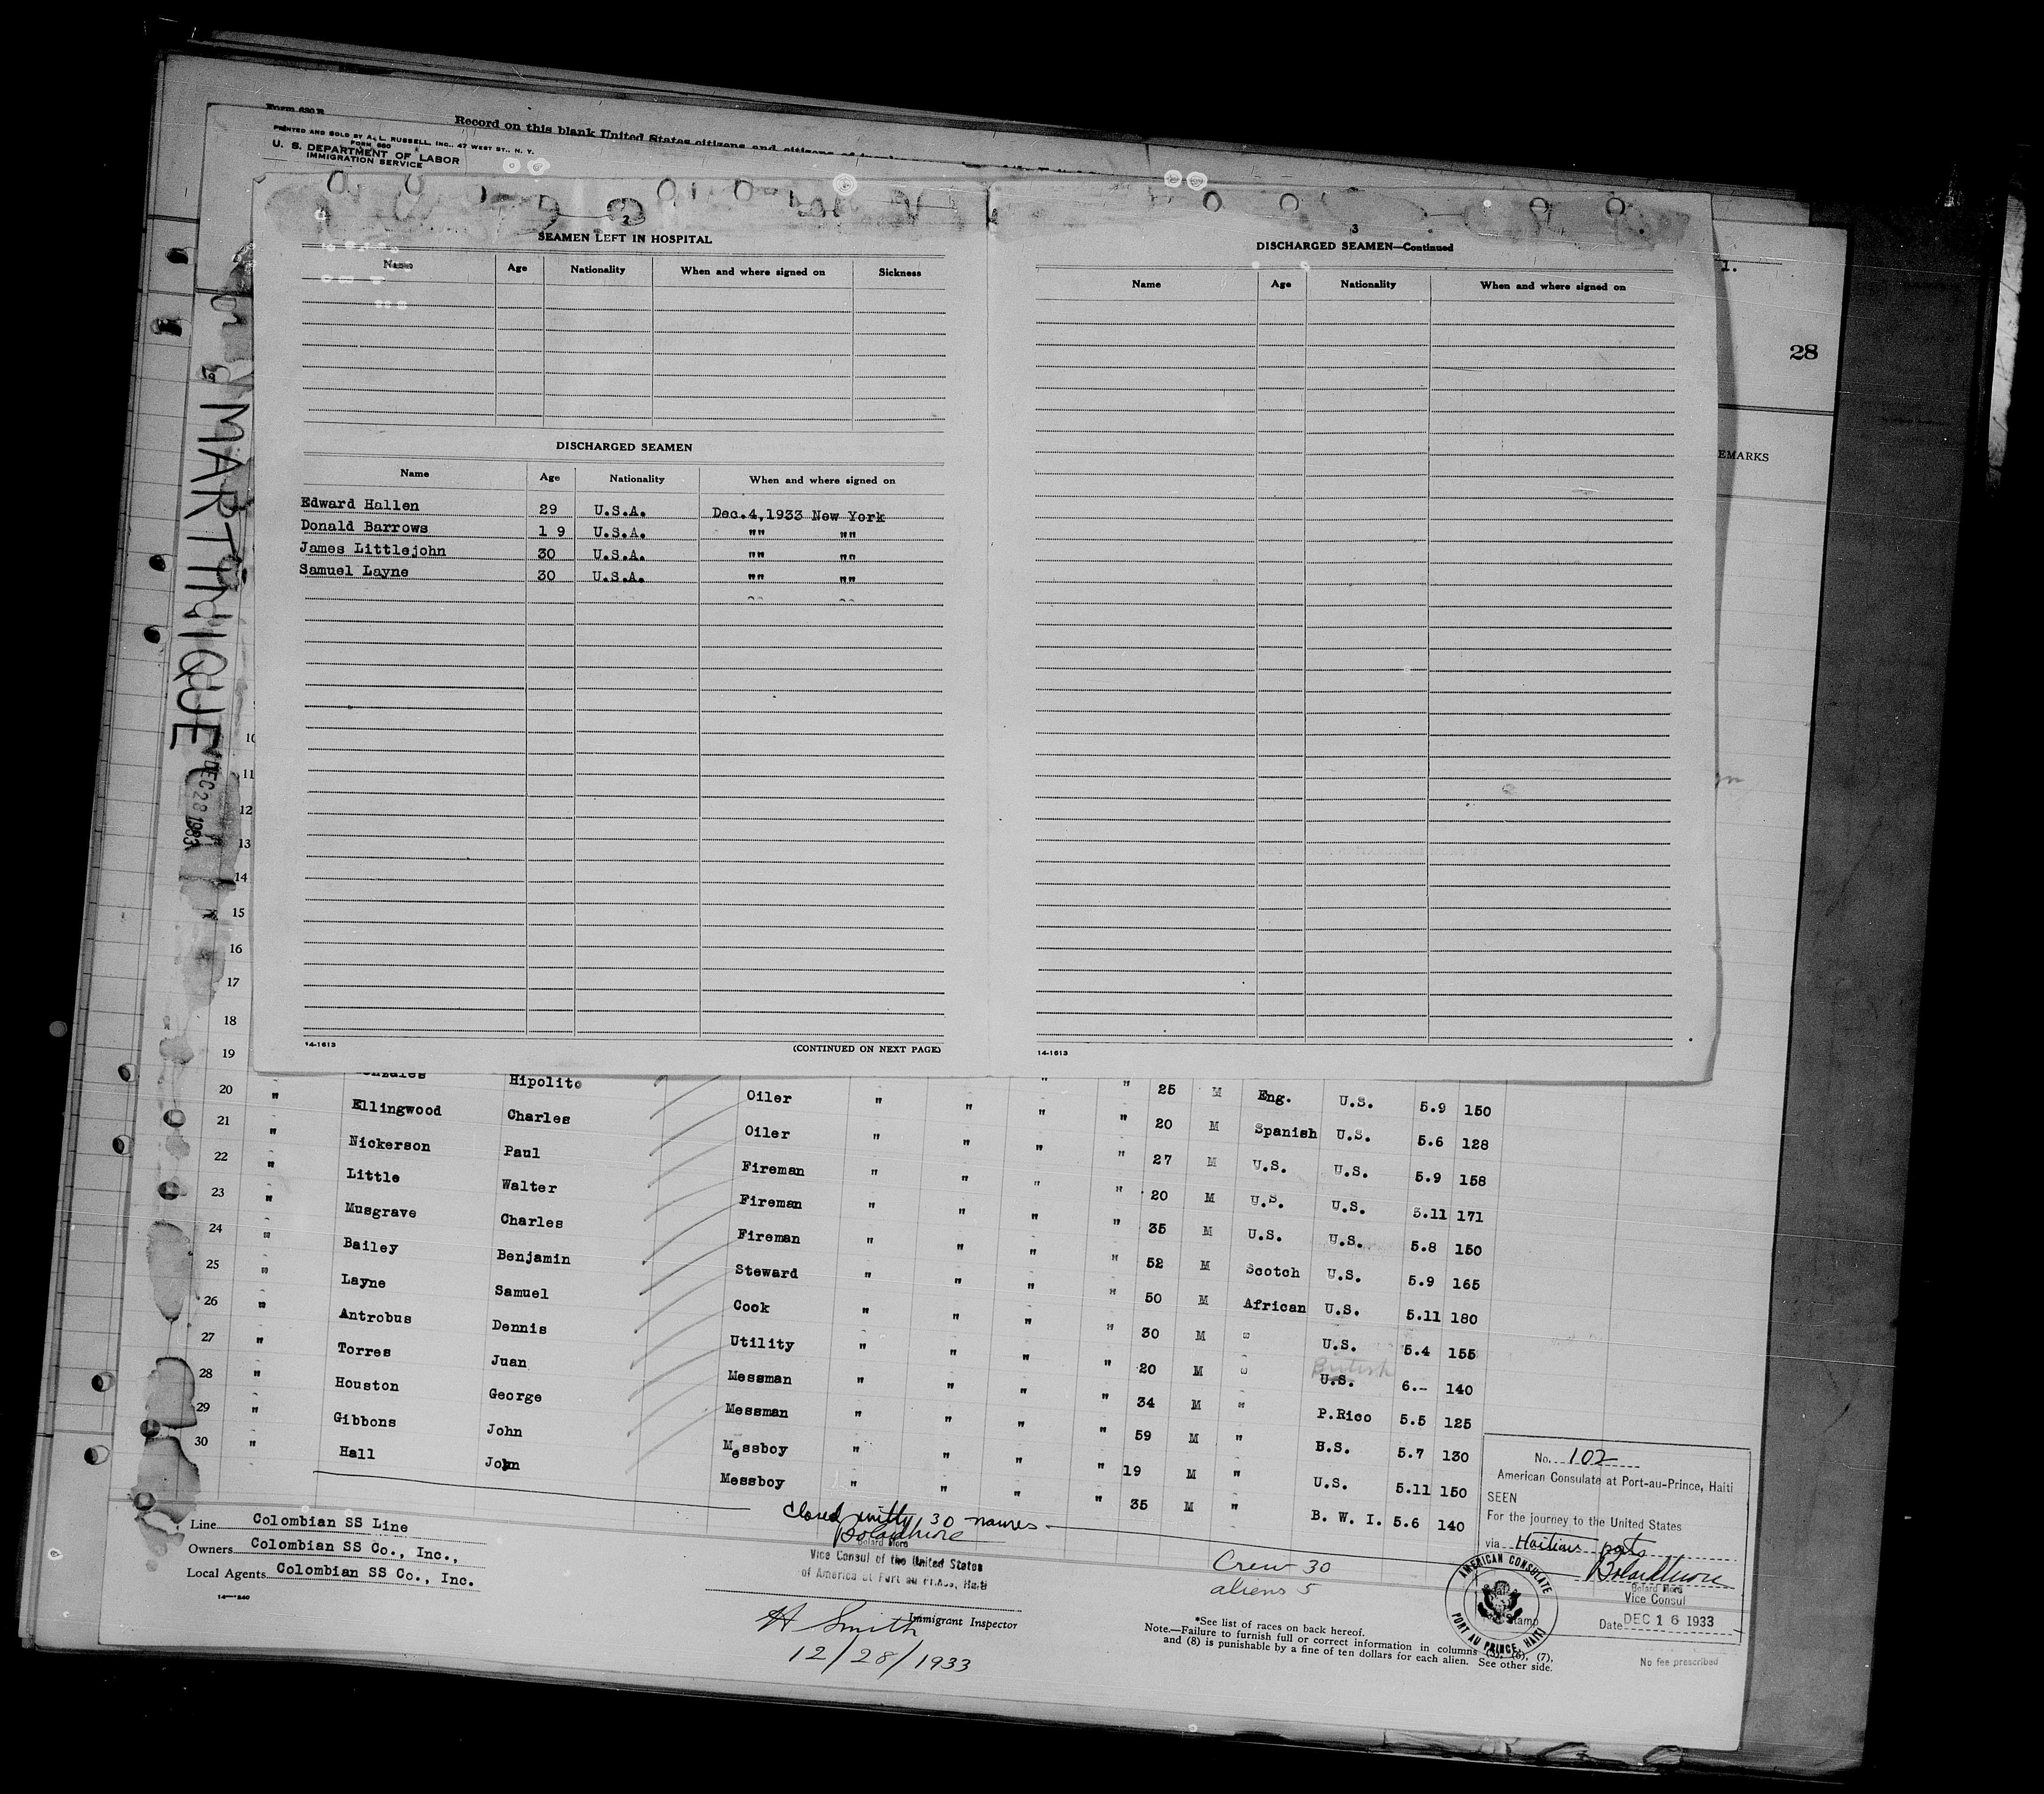 Record on this blank United States citizens and citizens of
PRINTED AND SOLD BY A. L. RUSSELL, INC., 47 WEST ST., N. Y.
FORM 680
U. S. DEPARTMENT OF LABOR
IMMIGRATION SERVICE
1.
28
EMARKS
MARTINIQUE
DEC 28 1933
2
SEAMEN LEFT IN HOSPITAL
Name Age Nationality When and where signed on Sickness
DISCHARGED SEAMEN
Name Age Nationality When and where signed on
Edward Hallen 29 U.S.A. Dec.4,1933 New York
Donald Barrows 1 9 U.S.A. "" ""
James Littlejohn 30 U.S.A. "" ""
Samuel Layne 30 U.S.A. "" ""
14-1613
(CONTINUED ON NEXT PAGE)
3
DISCHARGED SEAMEN—Continued
Name Age Nationality When and where signed on
14-1613
10
11
12
13
14
15
16
17
18
25 M Eng. U.S. 5.9 150
19 Hipolito Oiler " " " " 20 M Spanish U.S. 5.6 128
20 " Ellingwood Charles Oiler " " " " 27 M U.S. U.S. 5.9 158
21 " Nickerson Paul Fireman " " " " 20 M U.S. U.S. 5.11 171
22 " Little Walter Fireman " " " " 35 M U.S. U.S. 5.8 150
23 " Musgrave Charles Fireman " " " " 52 M Scotch U.S. 5.9 165
24 " Bailey Benjamin Steward " " " " 50 M African U.S. 5.11 180
25 " Layne Samuel Cook " " " " 30 M " U.S. 5.4 155
26 " Antrobus Dennis Utility " " " " 20 M " British U.S. 6.- 140
27 " Torres Juan Messman " " " " 34 M " P.Rico 5.5 125
28 " Houston George Messman " " " " 59 M " B.S. 5.7 130
29 " Gibbons John Messboy " " " " 19 M " U.S. 5.11 150
30 " Hall John Messboy " " " " 35 M " B. W. I. 5.6 140
Closed with 30 names
Bolard More
Vice Consul of the United States
of America at Port au Prince, Haiti
Line Colombian SS Line
Owners Colombian SS Co., Inc.,
Local Agents Colombian SS Co., Inc.
14—240
H Smith
Immigrant Inspector
12/28/1933
Crew 30
aliens 5
*See list of races on back hereof.
Note.—Failure to furnish full or correct information in columns (5), (6), (7),
and (8) is punishable by a fine of ten dollars for each alien. See other side.
No. 102
American Consulate at Port-au-Prince, Haiti
SEEN
For the journey to the United States
via Haitian ports
Bolard More
Vice Consul
Date DEC 16 1933
AMERICAN CONSULATE
PORT AU PRINCE, HAITI
Stamp
No fee prescribed